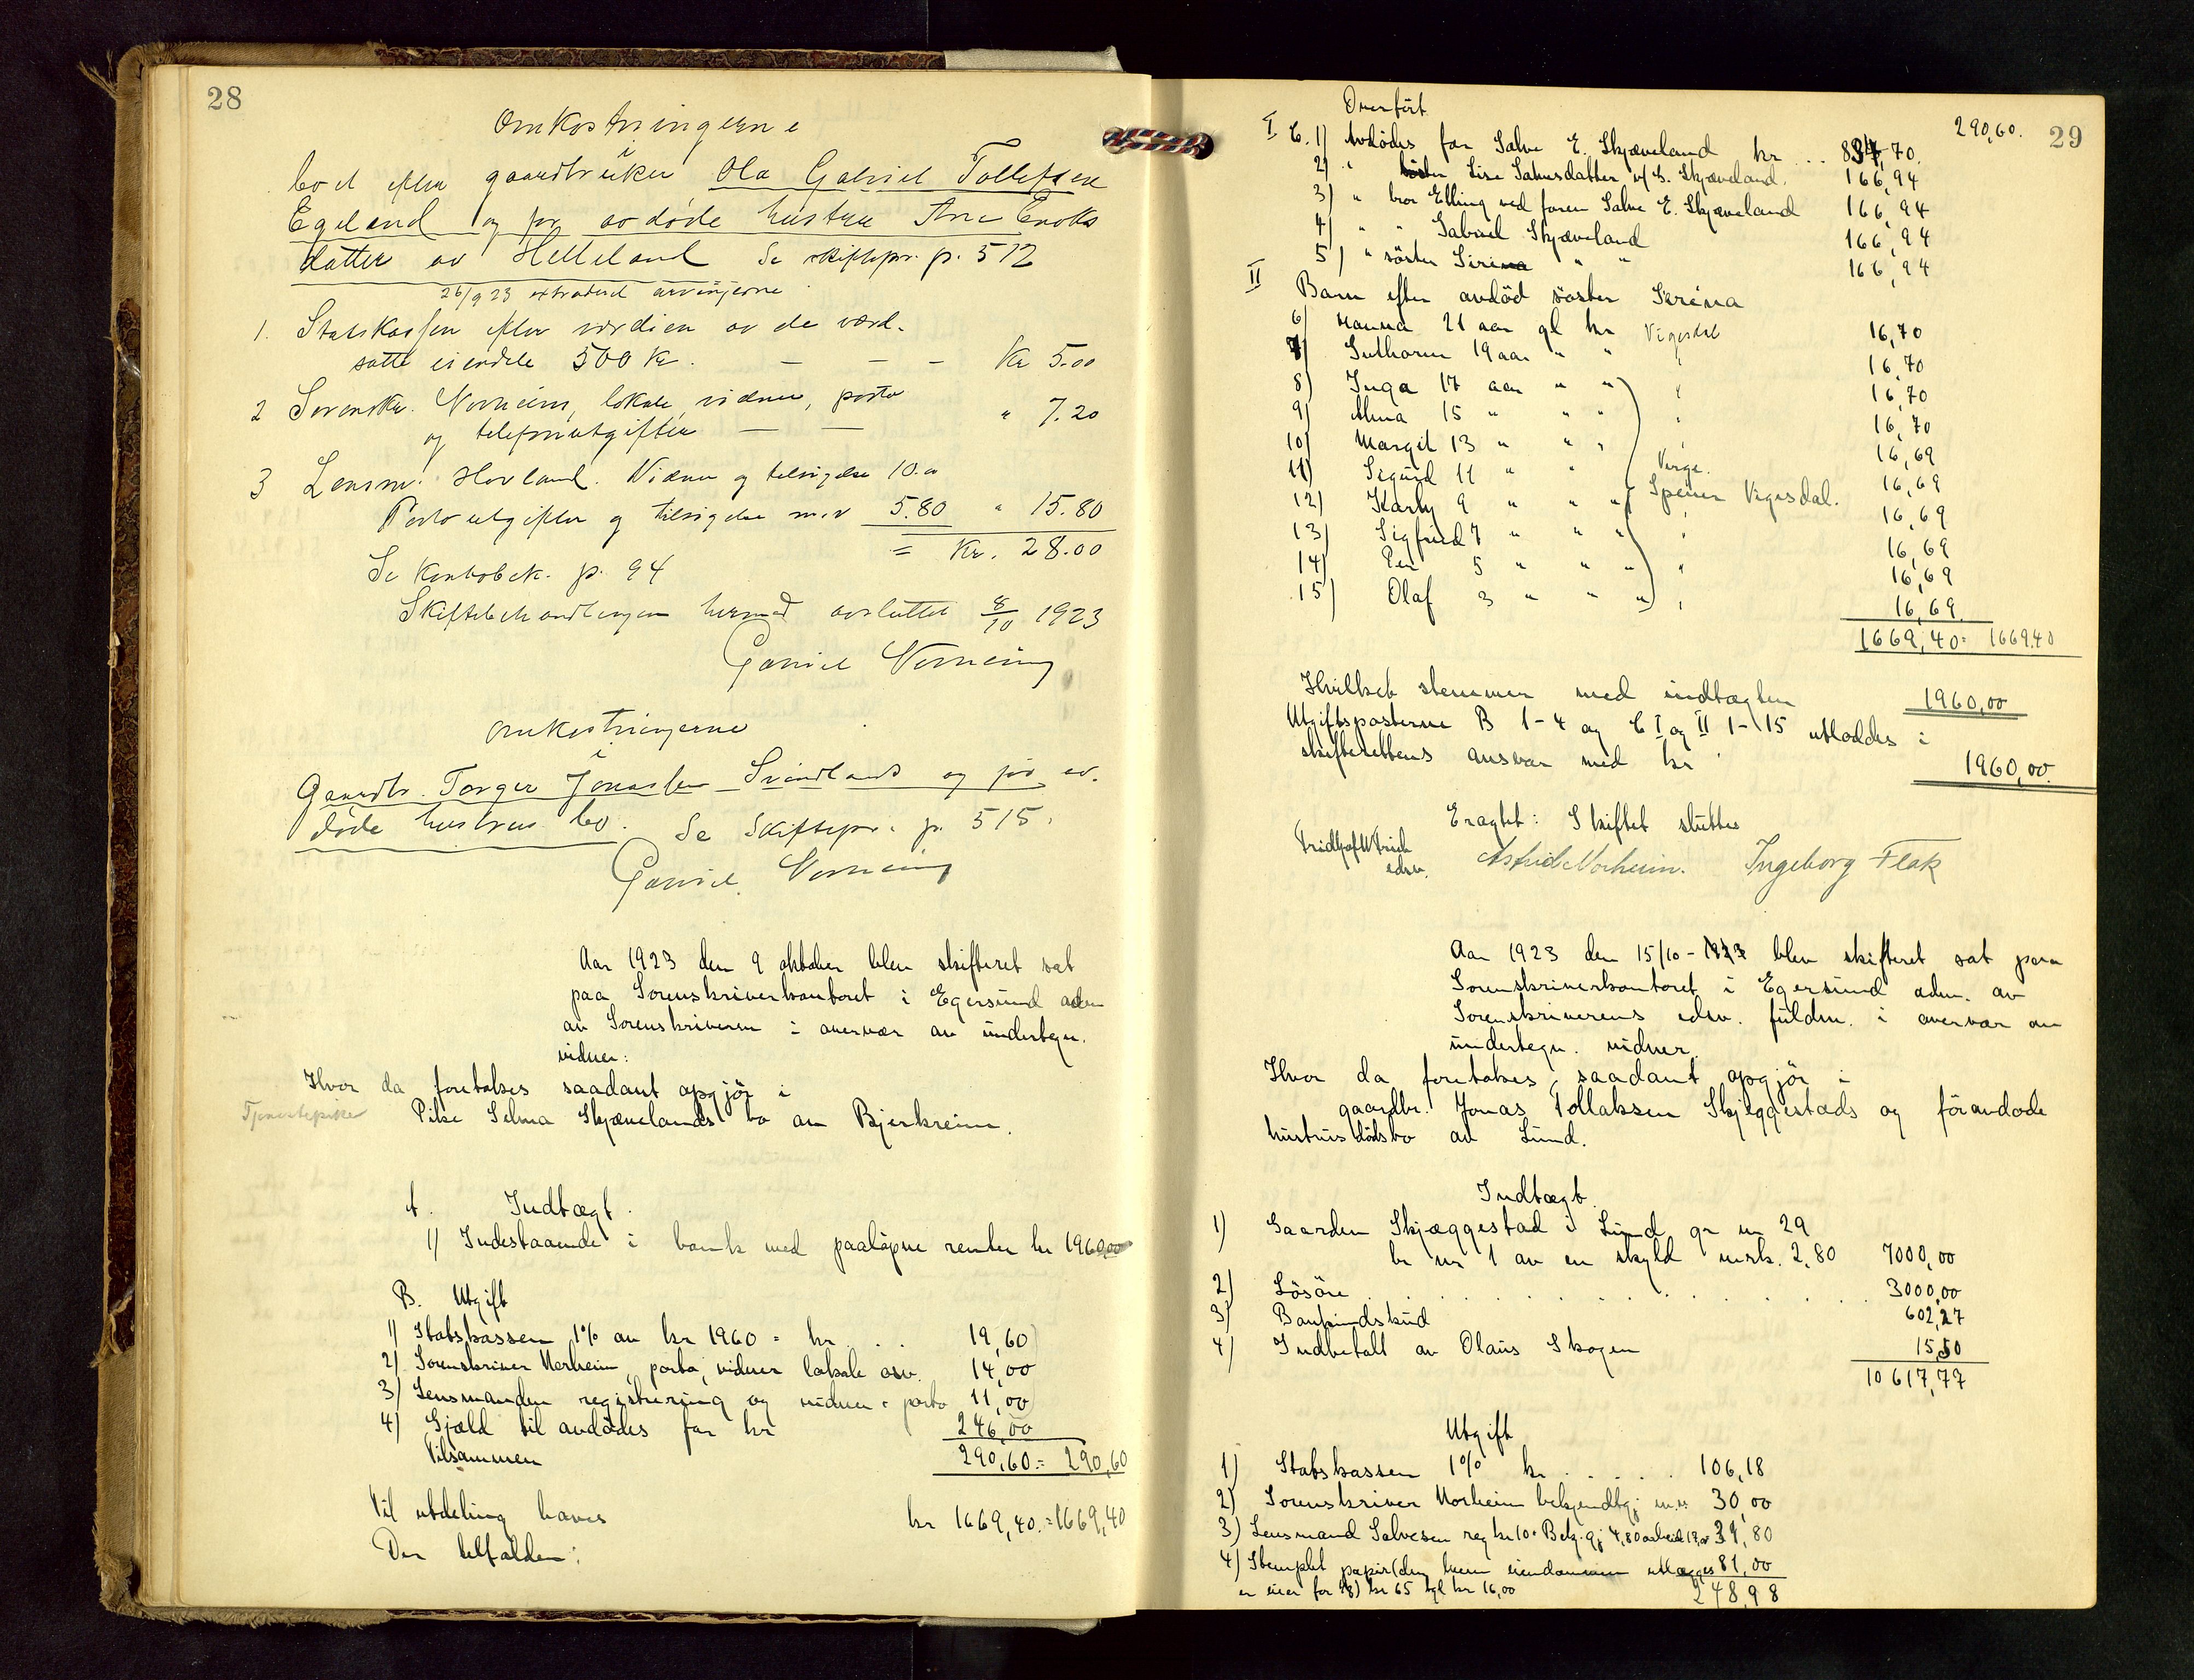 28
Omkostningerne
i
boet efter gaardbruker Ola Gabriel Tollefsen
Egeland og før avdøde hustru Ane Enoks
datter av Helleland Se skiftepr. p. 512
26/9 23 extraderet arvingerne
1. Statskassen efter værdien av de værd-
satte eiendele 500 Kr. — — — Kr 5.00
2 Sorenskr. Norheim, lokale, vidner, porto
og telefonutgifter — — " 7.20
3 Lensm. Hovland. Vidner og tilsigelse 10.00
Porto utgifter og tilsigelse m.v 5.80 " 15.80
= Kr. 28.00
Se Kontobok. p. 94
Skiftebehandlingen hermed avsluttet 8/10 1923
Gabriel Norheim
Omkostningerne
i
Gaardbr. Torger Jonassen Svindlands og før av-
døde hustrus bo. Se Skiftepr. p. 515.
Gabriel Norheim
Aar 1923 den 9 oktober blev skifteret sat
paa Sorenskriverkontoret i Egersund adm
av Sorenskriveren i overvær av undertegn.
vidner:
Hvor da foretokes saadant opgjör i
Tjenestepike Pike Selma Skjævelands bo av Bjerkreim.
A. Indtægt.
1) Indestaaende i bank med paaløpne renter kr 1960,00
B. Utgift
1) Statskassen 1% av kr 1960 = kr . . . 19,60
2) Sorenskriver Norheim, porto, vidner lokale osv. 14,00
3) Lensmanden registrering og vidner + porto 11,00
4) Gjæld til avdödes far kr 246,00
Tilsammen 290,60 = 290,60
Til utdeling haves kr 1669,40. = 1669,40
Der tilfalder:
29
Overført 290,60.
I C. 1) Avdödes far Salve E. Skjæveland kr . . 834,70.
2) " söster Lise Salvesdatter v/ S. Skjæveland. 166,94
3) " bror Elling ved faren Salve E. Skjæveland 166,94
4) " " Gabriel Skjæveland 166,94
5) " söster Siri " " 166,94
II Barn efter avdöd söster Serina
6) Hanna 21 aar gl kr Vigesdal 16,70
7) Guthorm 19 aar " " " 16,70
8) Inga 17 aar " " " 16,70
9) Alma 15 " " " " 16,70
10) Margit 13 " " " " 16,69
11) Sigurd 11 " " Verge. 16,69
12) Karly 9 " " " Speiner Vigesdal. 16,69
13) Sigfred 7 " " " " 16,69
14) Per 5 " " " " 16,69
15) Olaf 3 " " " " 16,69
1669,40 = 1669,40
Hvilket stemmer med indtægten 1960,00
Utgiftsposterne B 1-4 og C I og II 1-15 utloddes i
skifterettens ansvar med kr 1960,00.
Eragtet: Skiftet sluttes
Astrid Norheim. Ingeborg Flak
edsv.
Aar 1923 den 15/10 - 1923 blev skifteret sat paa
Sorenskriverkontoret i Egersund adm. av
Sorenskriverens edsv. fuldm. i overvær av
undertegn. vidner.
Hvor da foretokes saadant opgjör i
gaardbr. Jonas Tollaksen Skjæggestads og föravdöde
hustrus dödsbo av Lund.
Indtægt.
1) Gaarden Skjæggestad i Lund gr nr 29
br nr 1 av en skyld mrk. 2,80 7000,00
2) Lösöre . . . . . . . . . . . 3000,00
3) Bankindskud 602,27
4) Indbetalt av Olaus Skogen 15,50
10617,77
Utgift
1) Statskassen 1% kr . . . . . 106,18
2) Sorenskriver Norheim bekjendtgj m.v. 30,00
3) Lensmand Salvesen reg kr 10 + Bekj.gj 4,80 arbeid 17,00 31,80
4) Stemplet papir (den hvem eiendommen utlægges 81,00
er eier for ½) kr 65 tgl kr 16,00 248,98